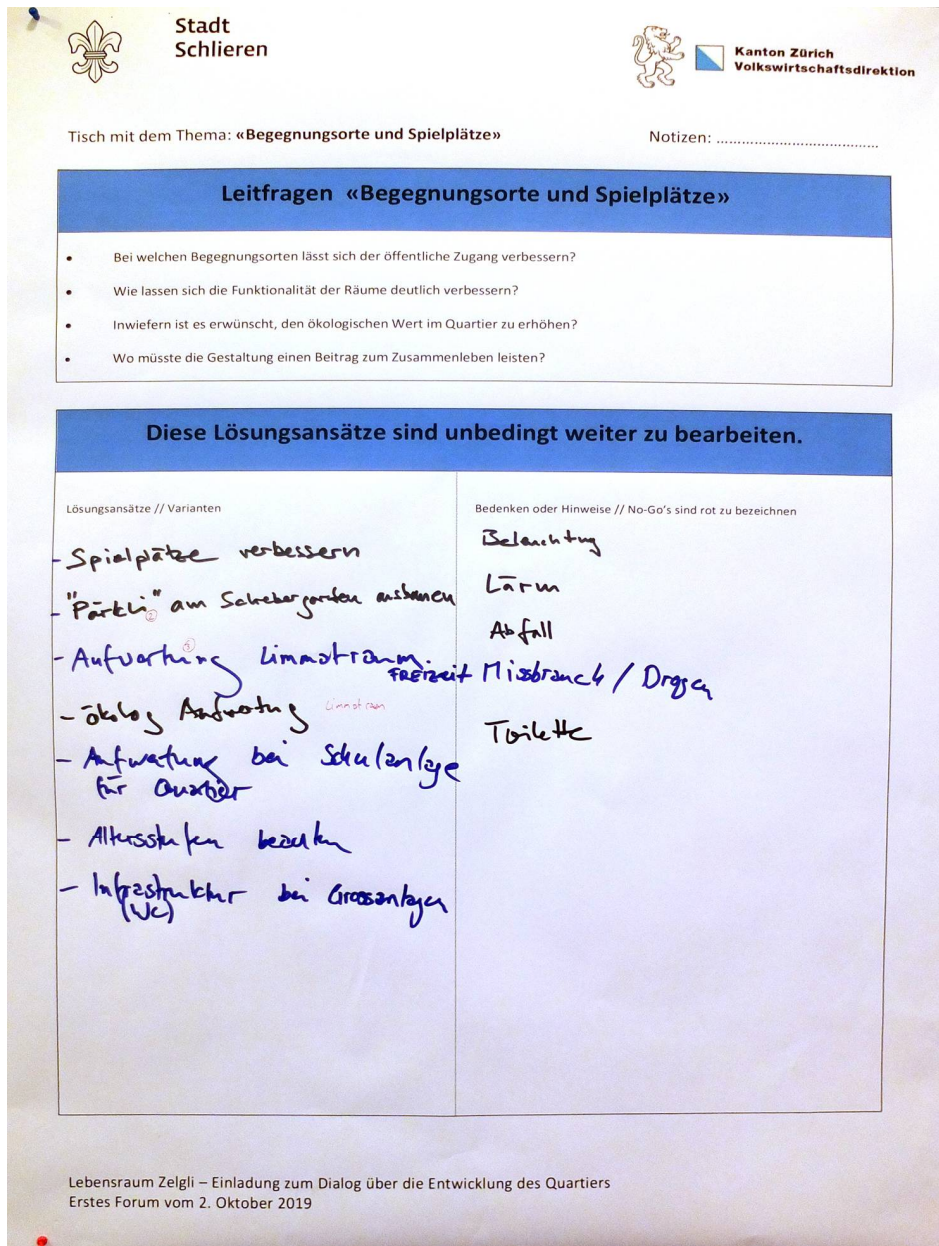 Stadt
Schlieren
Kanton Zürich
Volkswirtschaftsdirektion
Tisch mit dem Thema: «Begegnungsorte und Spielplätze»
Notizen: ......................................
Leitfragen «Begegnungsorte und Spielplätze»
• Bei welchen Begegnungsorten lässt sich der öffentliche Zugang verbessern?
• Wie lassen sich die Funktionalität der Räume deutlich verbessern?
• Inwiefern ist es erwünscht, den ökologischen Wert im Quartier zu erhöhen?
• Wo müsste die Gestaltung einen Beitrag zum Zusammenleben leisten?
Diese Lösungsansätze sind unbedingt weiter zu bearbeiten.
Lösungsansätze // Varianten
- Spielplätze verbessern
- "Pärkli" am Schrebergarten ausbauen
- Aufwertung Limmatraum.
FREIZEIT
- ökolog Aufwertung Limmatraum
- Aufwertung bei Schulanlage
für Quartier
- Altersstufen beachten
- Infrastruktur bei Grossanlagen
(WC)
Bedenken oder Hinweise // No-Go's sind rot zu bezeichnen
Beleuchtung
Lärm
Abfall
Missbrauch / Drogen
Toilette
Lebensraum Zelgli – Einladung zum Dialog über die Entwicklung des Quartiers
Erstes Forum vom 2. Oktober 2019